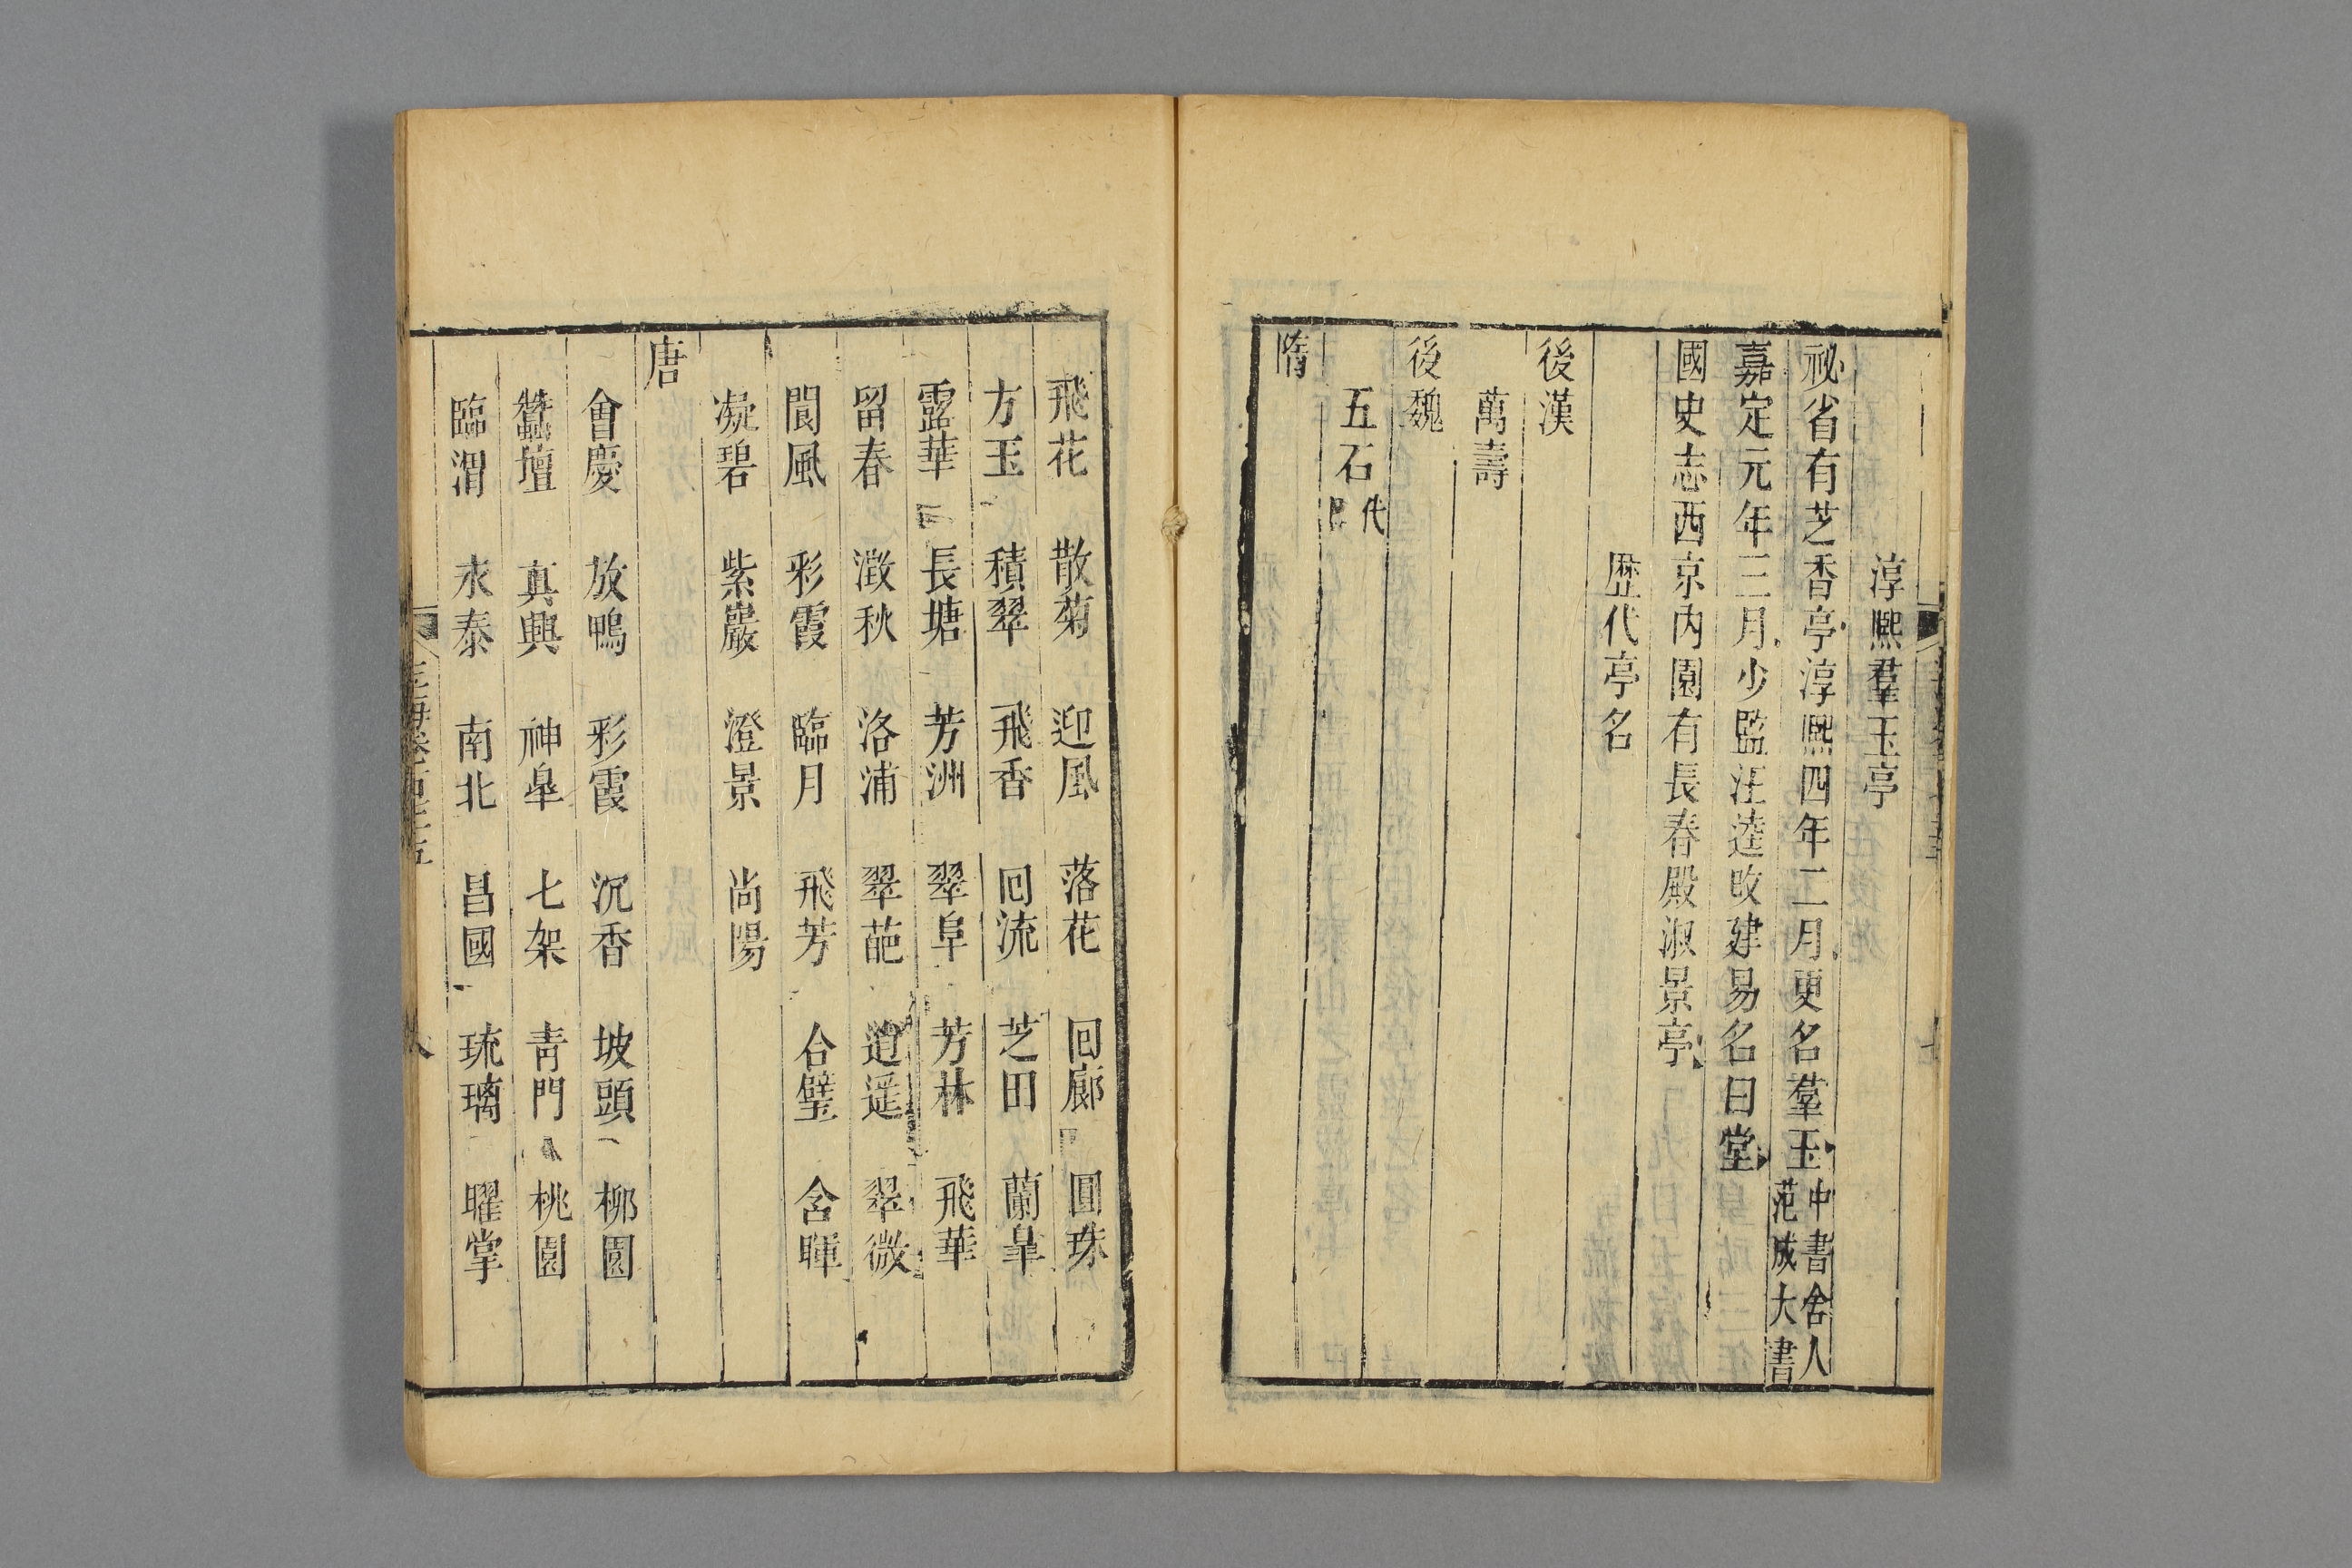 淳熈羣玉亭
祕省有芝香亭淳熈四年二月更名羣玉中書舍人范成大書
嘉定元年三月少監汪逵改建易名曰堂
國史志西京内園有長春殿淑景亭
歴代亭名
後漢
萬壽
後魏
五石代
隋
飛花 散菊 迎風 落花 囘廊 圓珠
方玉 積翠 飛香 囘流 芝田 蘭皐
露華 長塘 芳洲 翠阜 芳林 飛華
留春 澂秋 洛浦 翠葩 逍遥 翠微
閬風 彩霞 臨月 飛芳 合璧 含暉
凝碧 紫巖 澄景 尚陽
唐
會慶 放鴨 彩霞 沉香 坡頭 柳園
蠶壇 真興 神臯 七架 青門 桃園
臨渭 永泰 南北 昌國 琉璃 曜掌
玉海卷一百七十五 八